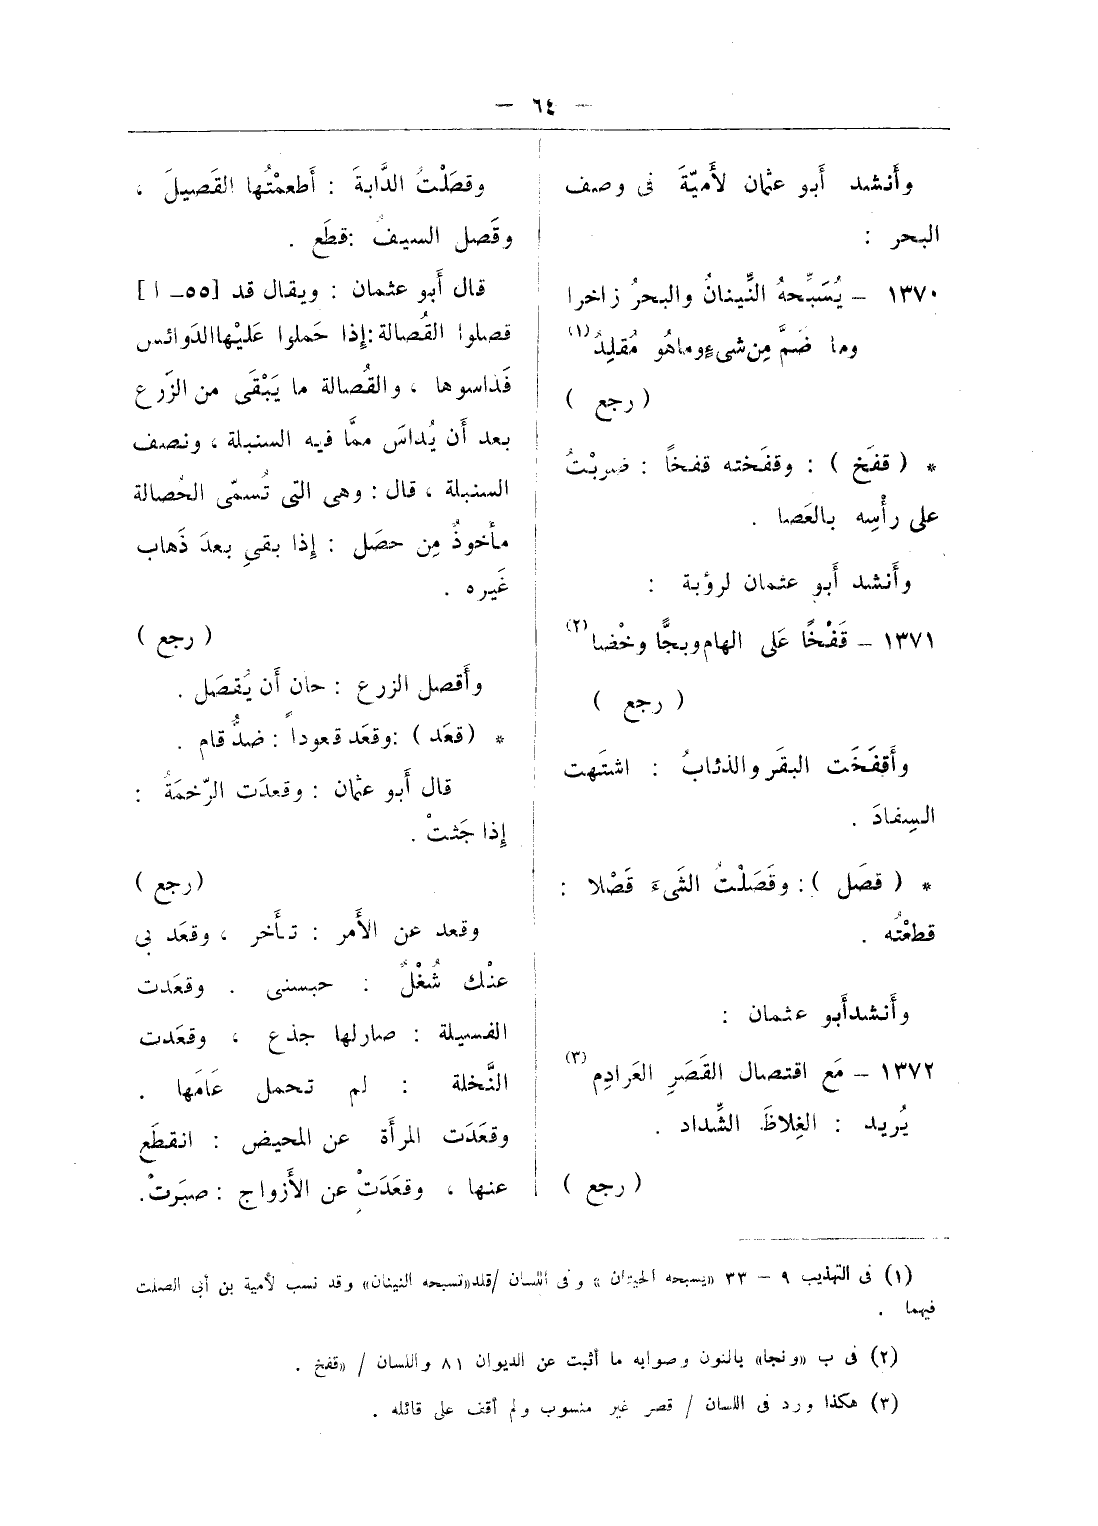 — ٦٤ —
وأَنشد أَبو عثمان لأُميّةَ فى وصف
البحر :
١٣٧٠ – يُسَبِّحهُ النِّينانُ والبحرُ زاخرا
وما ضَمَّ مِن شىءٍ وماهُو مُقلِدُ(١)
( رجع )
* ( قفَخ ) : وقفَخته قفخاً : ضربْتُ
على رأْسِه بالعَصا .
وأَنشد أَبو عثمان لرؤبة :
١٣٧١ – قَفْخًا عَلى الهام وبجًّا وخْضا(٢)
( رجع )
وأَقفَخَت البقَر والذئابُ : اشتَهت
السِفادَ .
* ( قصَل ) : وقَصَلْتُ الشَىءَ قَصْلا :
قطعْتُه .
وأَنشد أَبو عثمان :
١٣٧٢ – مَع اقتصال القَصَرِ العَرادِم(٣)
يُريد : الغِلاظَ الشِّداد .
( رجع )
وقصَلْتُ الدَّابةَ : أَطعمْتُها القَصيلَ ،
وقَصل السيفُ : قطَع .
قال أَبو عثمان : ويقال قد [٥٥– ا]
قصلوا القُصالة : إِذا حَملوا عَليْها الدَوائس
فَداسوها ، والقُصالة ما يَبْقَى من الزَرع
بعد أَن يُداسَ ممَّا فيه السنبلة ، ونصف
السنبلة ، قال : وهى التى تُسمّى الحُصالة
مأخوذٌ مِن حصَل : إِذا بقي بعدَ ذَهاب
غَيره .
( رجع )
وأَقصل الزرع : حان أَن يُقصَل .
* ( قعَد ) : وقعَد قعوداً : ضدُّ قام .
قال أَبو عثمان : وقعدَت الرّخمَةُ :
إِذا جَثتْ .
( رجع )
وقعد عن الأَمر : تأَخر ، وقعَد بى
عنْك شُغْلٌ : حبسنى . وقعَدت
الفسيلة : صارلها جذع ، وقعَدت
النَّخلة : لم تحمل عَامَها .
وقعَدَت المرأَة عن المحيض : انقطَع
عنها ، وقعَدَتْ عن الأَزواج : صبَرتْ.
(١) فى التهذيب ٩ – ٣٣ «يسبحه الحيتان » وفى اللسان /قلد«تسبحه النينان» وقد نسب لأمية بن أبى الصلت
فيهما .
(٢) فى ب «ونجا» بالنون وصوابه ما أثبت عن الديوان ٨١ واللسان / «قفخ .
(٣) هكذا ورد فى اللسان / قصر غير منسوب ولم أقف على قائله .